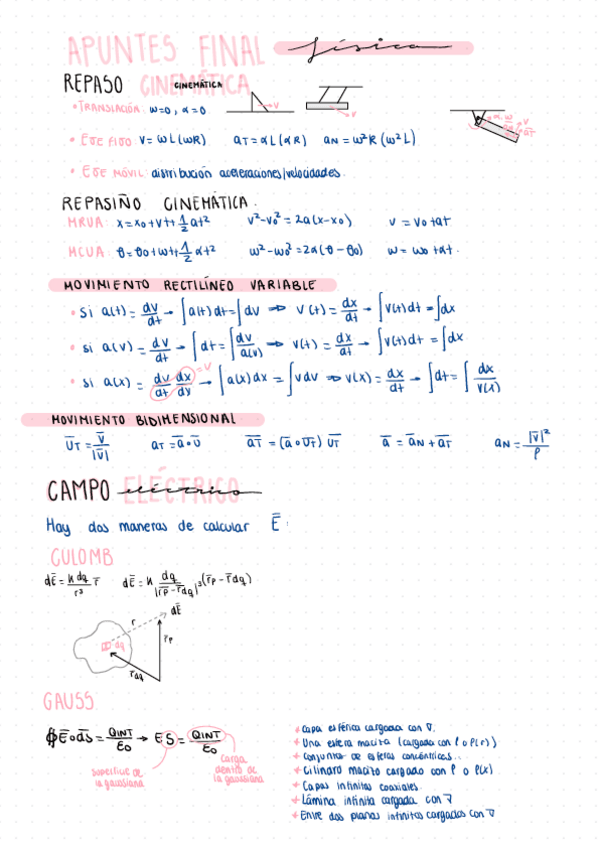 APUNTES FINAL física
REPASO CINEMÁTICA CINEMÁTICA
• TRANSLACIÓN: ω=0, α=0
v
v
α, ω
v
aT
• EJE FIJO: v= ωL(ωR) aT = αL(αR) aN = ω²R (ω²L)
• EJE MÓVIL: distribución aceleraciones/velocidades.
REPASIÑO CINEMÁTICA.
MRUA: x=x0+vt+1/2 at² v²-v0² = 2a(x-x0) v = v0+at
MCUA: θ=θ0+ωt+1/2 αt² ω²-ω0² =2α(θ-θ0) ω= ω0+αt.
MOVIMIENTO RECTILÍNEO VARIABLE
• Si a(t) = dv/dt → ∫a(t)dt=∫dv ⇒ v(t) = dx/dt → ∫v(t)dt =∫dx
• si a(v) = dv/dt → ∫dt = ∫dv/a(v) ⇒ v(t) = dx/dt → ∫v(t)dt = ∫dx
• si a(x) = dv/dt dx/dx =v → ∫a(x)dx = ∫vdv ⇒ v(x) = dx/dt → ∫dt = ∫ dx/v(x)
MOVIMIENTO BIDIMENSIONAL
ūT = v̄/|v̄| aT = ā∘ū āT = (ā∘ūT) ūT ā = āN + āT aN = |v̄|²/ρ
CAMPO ELÉCTRICO eléctrico
Hay dos maneras de calcular Ē:
CULOMB
dĒ = K dq/r³ r̄ dĒ = K dq/|r̄p - r̄dq|³ (r̄p - r̄dq)
dĒ
r
dq
r̄p
r̄dq
GAUSS
∮Ē∘ds̄ = QINT/ε0 → E S = QINT/ε0
superficie de la gaussiana
carga dentro de la gaussiana
+ Capa esférica cargada con σ.
+ Una esfera maciza (cargada con ρ o ρ(r))
+ Conjunto de esferas concéntricas..
+ Cilindro macizo cargado con ρ o ρ(x)
+ Capas infinitas coaxiales.
+ Lámina infinita cargada con σ
+ Entre dos planos infinitos cargados con σ